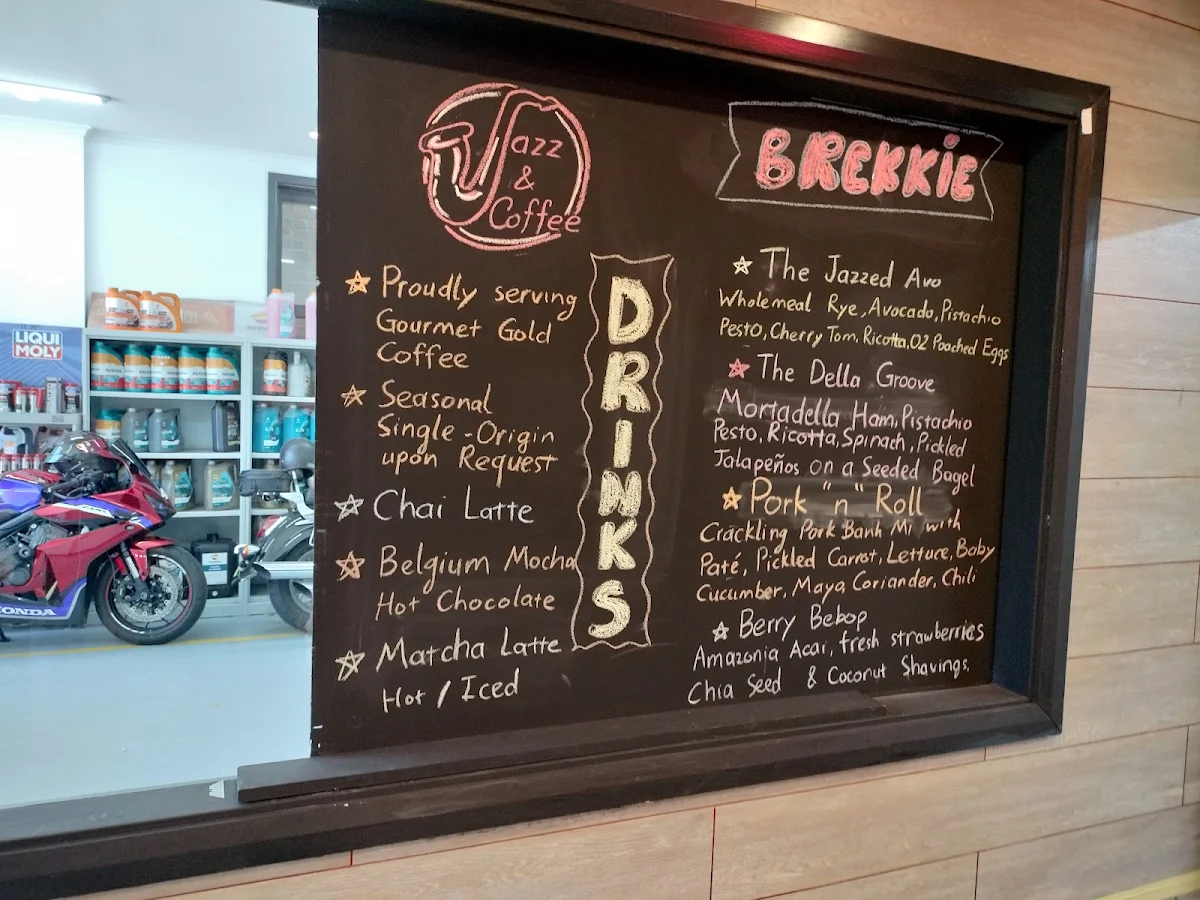 Jazz
&
Coffee
Proudly serving
Gourmet Gold
Coffee
Seasonal
Single-Origin
upon Request
Chai Latte
Belgium Mocha
Hot Chocolate
Matcha Latte
Hot / Iced
DRINKS
BREKKIE
The Jazzed Avo
Wholemeal Rye, Avocado, Pistachio
Pesto, Cherry Tom, Ricotta, 02 Poached Eggs
The Della Groove
Mortadella Ham, Pistachio
Pesto, Ricotta, Spinach, Pickled
Jalapeños on a Seeded Bagel
Pork "n" Roll
Crackling Pork Banh Mi with
Paté, Pickled Carrot, Letture, Baby
Cucumber, Mayo, Coriander, Chili
Berry Bebop
Amazonia Acai, fresh strawberries
Chia Seed & Coconut Shavings.
LIQUI
MOLY
HONDA